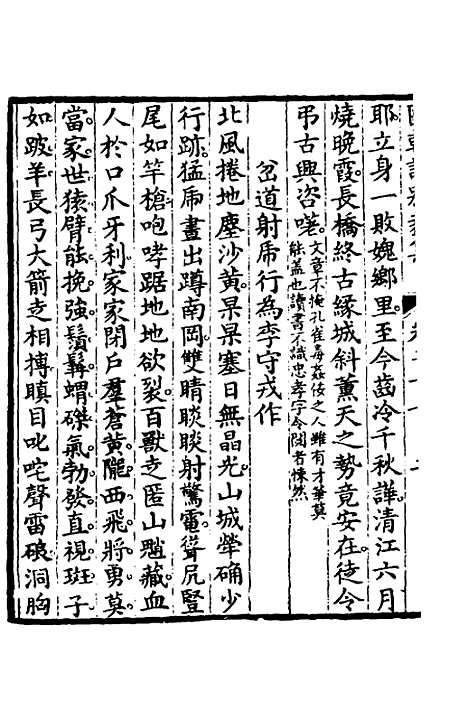 耶立身一敗媿鄉里至今齒冷千秋譁清江六月
燒晚霞長橋終古緣城斜薰天之勢竟安在徒令
弔古興咨嗟文章不掩孔雀毒姦佞之人雖有才華莫
能蓋也讀書不識忠孝字令閱者悚然
岔道射虎行為李守戎作
北風捲地塵沙黃杲杲塞日無晶光山城犖确少
行跡猛虎晝出蹲南岡雙睛睒睒射驚電聳尻豎
尾如竿槍咆哮踞地地欲裂百獸走匿山魈藏血
人於口爪牙利家家閉戶羣蒼黃隴西飛將勇莫
當家世猿臂能挽強鬚髯蝟磔氣勃發直視斑子
如跛羊長弓大箭走相搏瞋目叱咤聲雷硠洞胸